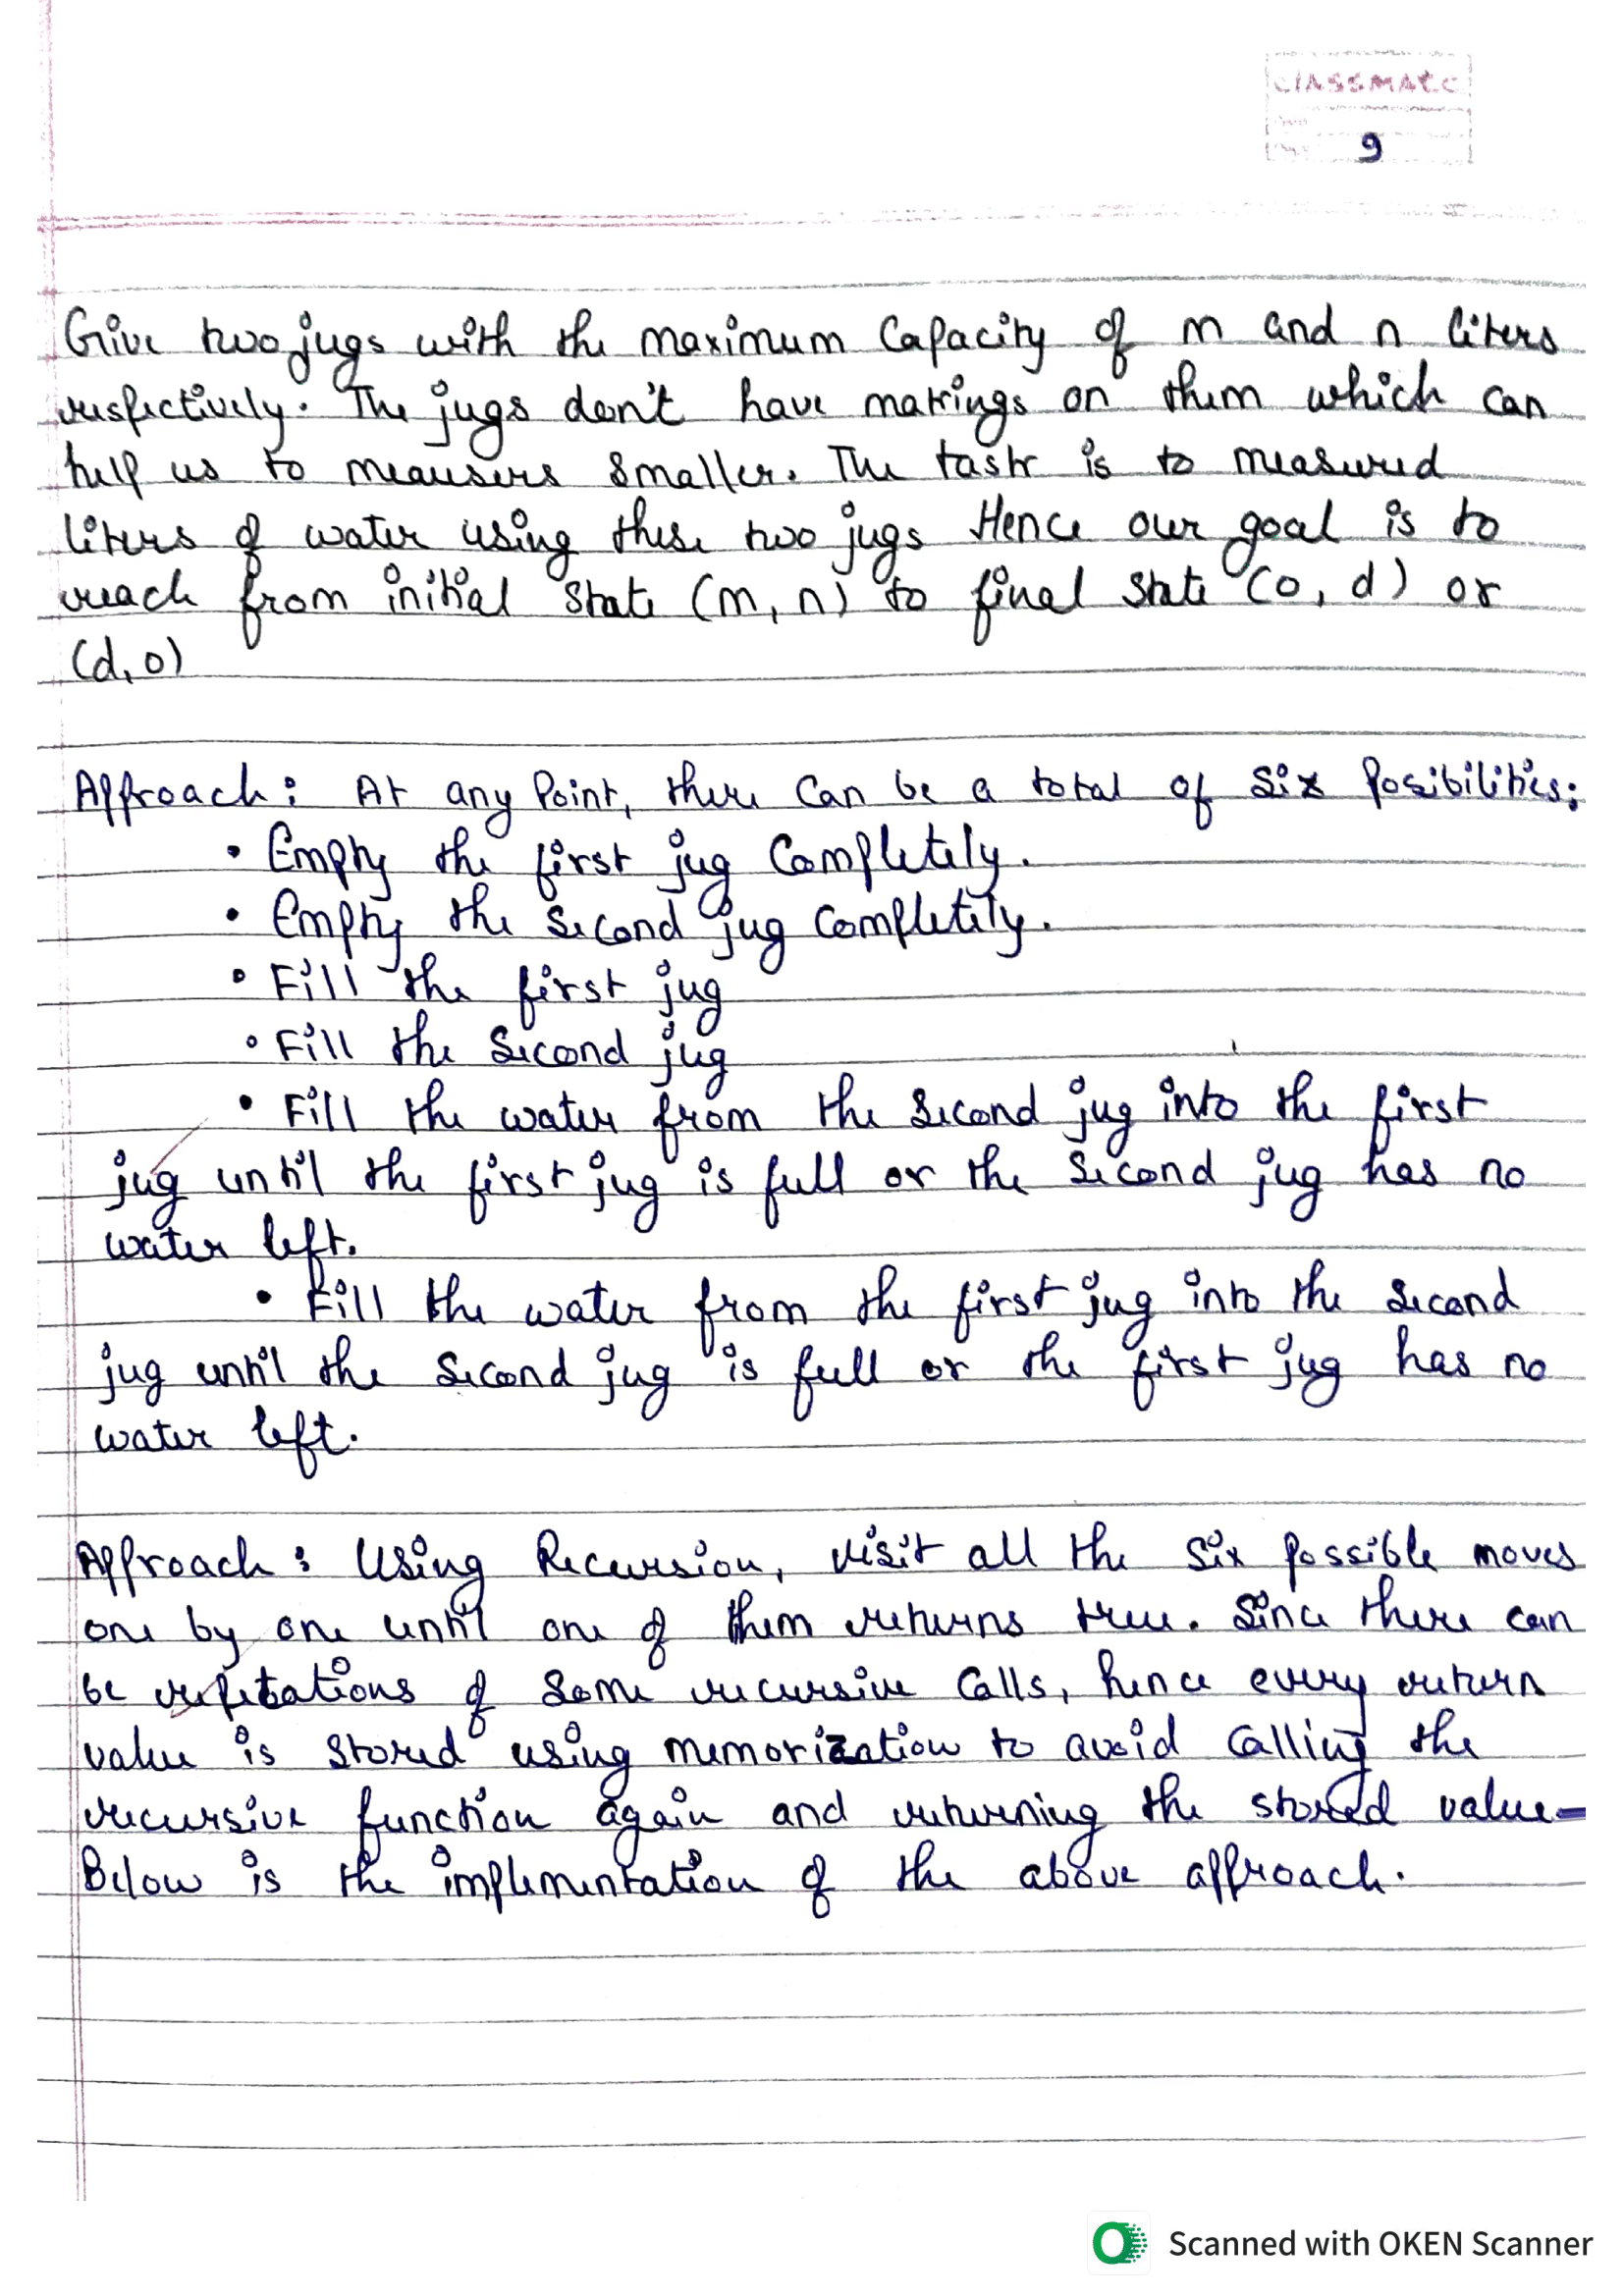 classmate
9
Give two jugs with the maximum Capacity of m and n liters
respectively. The jugs don't have markings on them which can
help us to meausers smaller. The task is to measured
liters of water using these two jugs Hence our goal is to
reach from initial state (m, n) to final state (0, d) or
(d, 0)
Approach: At any Point, there Can be a total of Six Posibilities:
• Empty the first jug Completely.
• Empty the Second jug Completely.
• Fill the first jug
• Fill the Second jug
• Fill the water from the Second jug into the first
jug until the first jug is full or the Second jug has no
water left.
• Fill the water from the first jug into the Second
jug until the Second jug is full or the first jug has no
water left.
Approach: Using Recursion, visit all the Six possible moves
one by one until one of them returns true. Since there can
be repetations of Some recursive Calls, hence every return
value is Stored using memorization to avoid Calling the
recursive function again and returning the stored value-
Below is the implementation of the above approach.
Scanned with OKEN Scanner